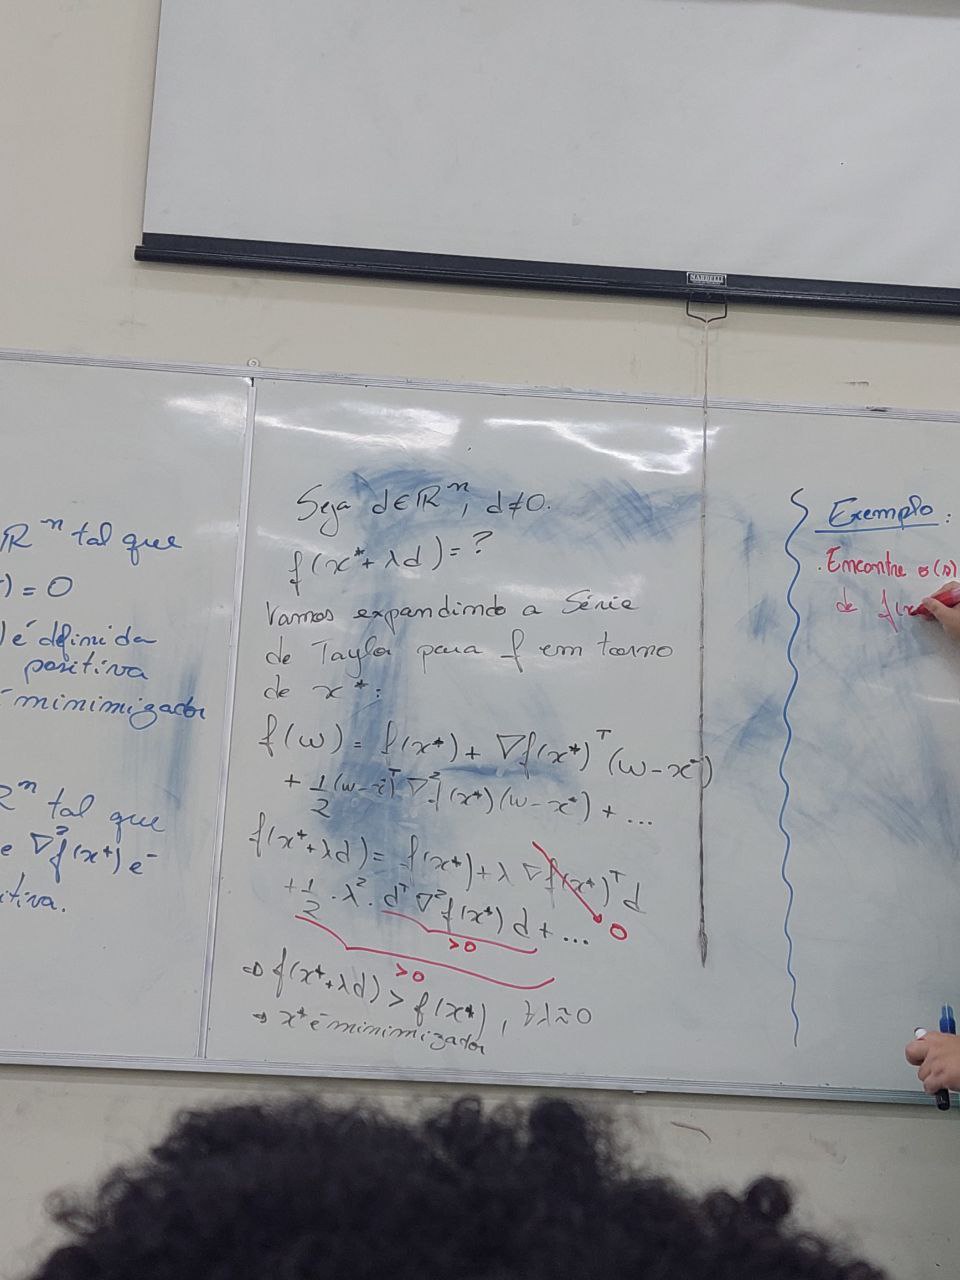 MARBELI
ℝⁿ tal que
) = 0
) é definida
positiva
é minimizador
ℝⁿ tal que
e ∇²f(x*) é
itiva.
Seja d∈ℝⁿ, d≠0.
f(x*+λd)=?
Vamos expandindo a Série
de Taylor para f em torno
de x*:
f(w) = f(x*) + ∇f(x*)ᵀ(w-x*)
+ 1/2 (w-x*)ᵀ ∇²f(x*)(w-x*) + ...
f(x*+λd) = f(x*) + λ ∇f(x*)ᵀd
+ 1/2 · λ² · dᵀ ∇²f(x*) d + ... 0
>0
>0
⇒ f(x*+λd) > f(x*), ∀λ≈0
⇒ x* é minimizador
Exemplo:
. Encontre o(s)
de f(x